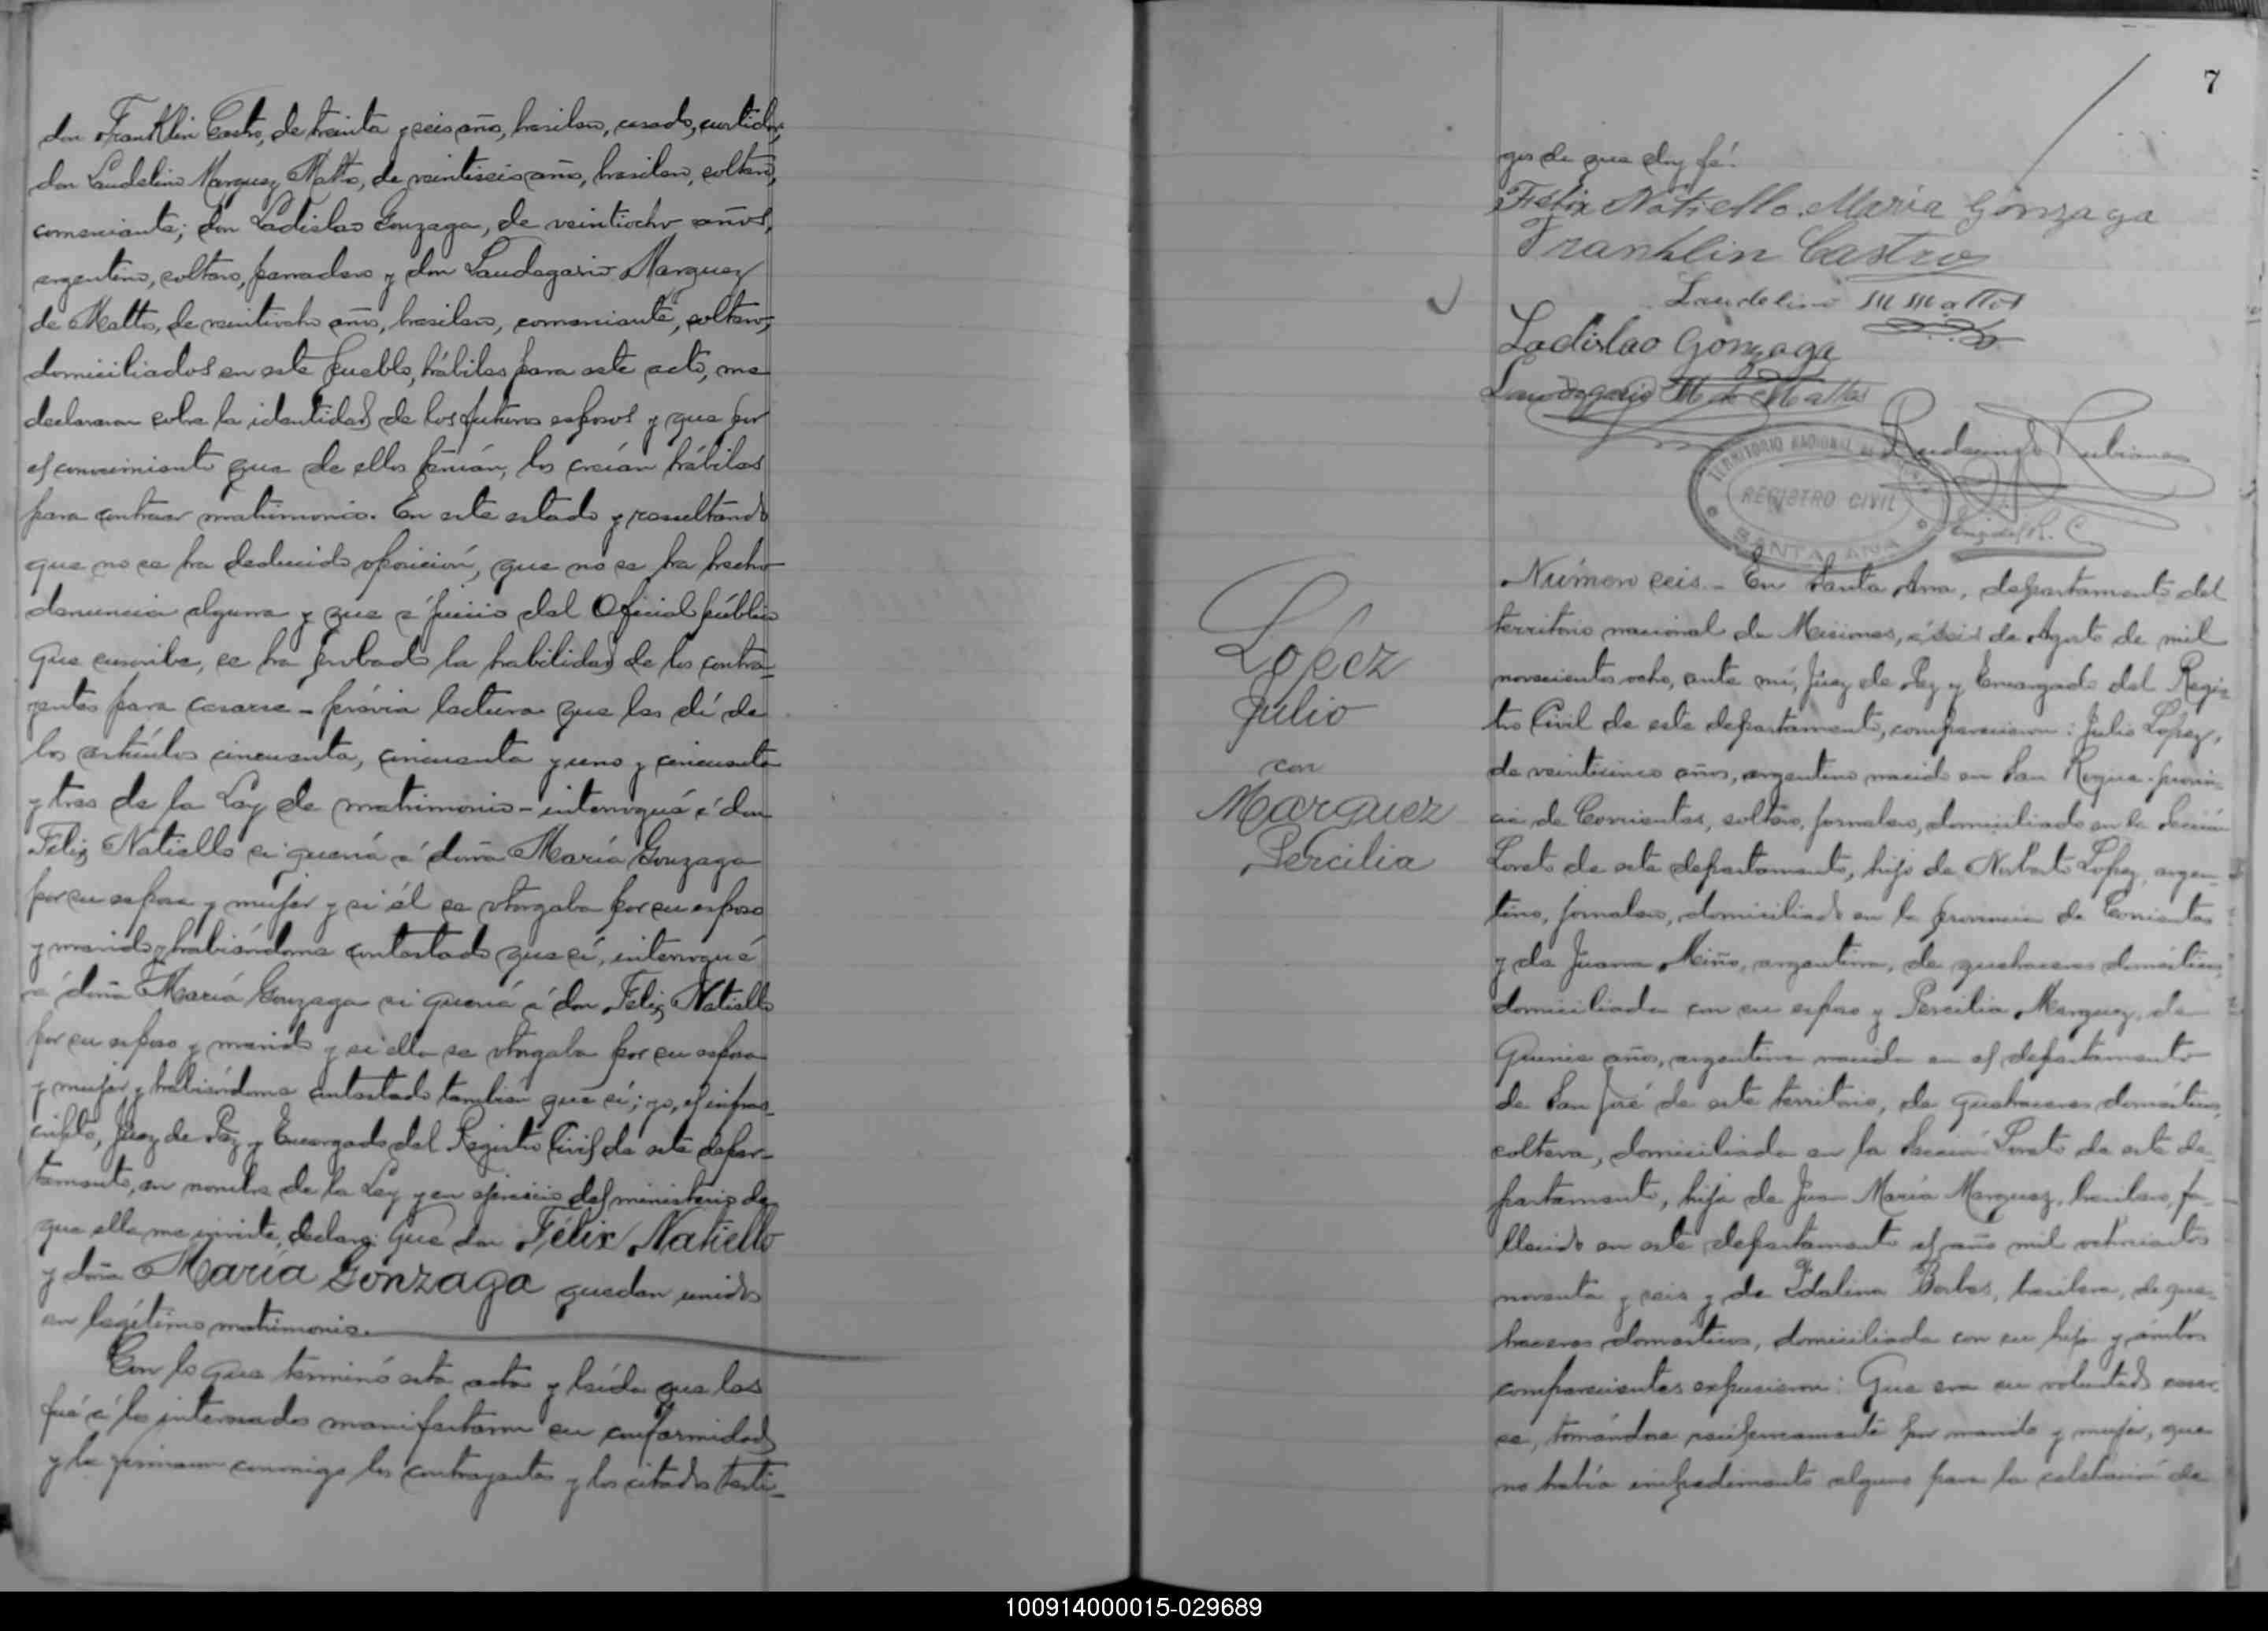 don Franklin Castro, de treinta y seis años, brasilero, casado, curtidor,
don Laudelino Marquez Matto, de veintiseis años, brasilero, soltero,
comerciante; don Ladislao Gonzaga, de veintiocho años,
argentino, soltero, panadero y don Laudegario Marquez
de Mattos, de veintiocho años, brasilero, comerciante, soltero,
domiciliados en este pueblo, hábiles para este acto, me
declararon sobre la identidad de los futuros esposos y que por
el conocimiento que de ellos tenían, los creían hábiles
para contraer matrimonio. En este estado y resultando
que no se ha deducido oposición, que no se ha hecho
denuncia alguna y que á juicio del Oficial público
que suscribe, se ha probado la habilidad de los contra-
yentes para casarse - prévia lectura que les dí de
los artículos cincuenta, cincuenta y uno y cincuenta
y tres de la Ley de matrimonio - interrogué á don
Felix Natiello si quería á doña María Gonzaga
por su esposa y mujer y si él se otorgaba por su esposo
y marido y habiéndome contestado que sí, interrogué
á doña María Gonzaga si quería á don Felix Natiello
por su esposo y marido y si ella se otorgaba por su esposa
y mujer y habiéndome contestado también que sí; yo, el infras-
cripto, Juez de Paz y Encargado del Registro Civil de este depar-
tamento, en nombre de la Ley y en ejercicio del ministerio de
que ella me inviste, declaro: Que don Félix Natiello
y doña María Gonzaga quedan unidos
en legítimo matrimonio.
Con lo que terminó esta acta y leída que les
fué á los interesados manifestaron su conformidad
y la firmaron conmigo los contrayentes y los citados testi-
7
gos de que doy fé.
Felix Natiello. María Gonzaga
Franklin Castro
Laudelino M Mattos
Ladislao Gonzaga
Laudegario M de Mattos
Rudecindo
TERRITORIO NACIONAL DE MISIONES
REGISTRO CIVIL
SANTA ANA
Lopez
Julio
con
Marquez
Percilia
Número seis. - En Santa Ana, departamento del
territorio nacional de Misiones, á seis de Agosto de mil
novecientos ocho, ante mí, Juez de Paz y Encargado del Regis-
tro Civil de este departamento, comparecieron: Julio Lopez,
de veinticinco años, argentino nacido en San Roque - provin-
cia de Corrientes, soltero, jornalero, domiciliado en la Sección
Loreto de este departamento, hijo de Norberto Lopez, argen-
tino, jornalero, domiciliado en la provincia de Corrientes
y de Juana Miño, argentina, de quehaceres domésticos,
domiciliada con su esposo y Percilia Marquez, de
quince años, argentina nacida en el departamento
de San José de este territorio, de quehaceres domésticos,
soltera, domiciliada en la Sección Loreto de este de-
partamento, hija de Juan María Marquez, brasilero, fa-
llecido en este departamento el año mil ochocientos
noventa y seis y de Idalina Borbes, brasilera, de que-
haceres domésticos, domiciliada con su hija y ámbos
comparecientes expusieron: Que era su voluntad casar-
se, tomándose recíprocamente por marido y mujer, que
no había impedimento alguno para la celebración de
100914000015-029689